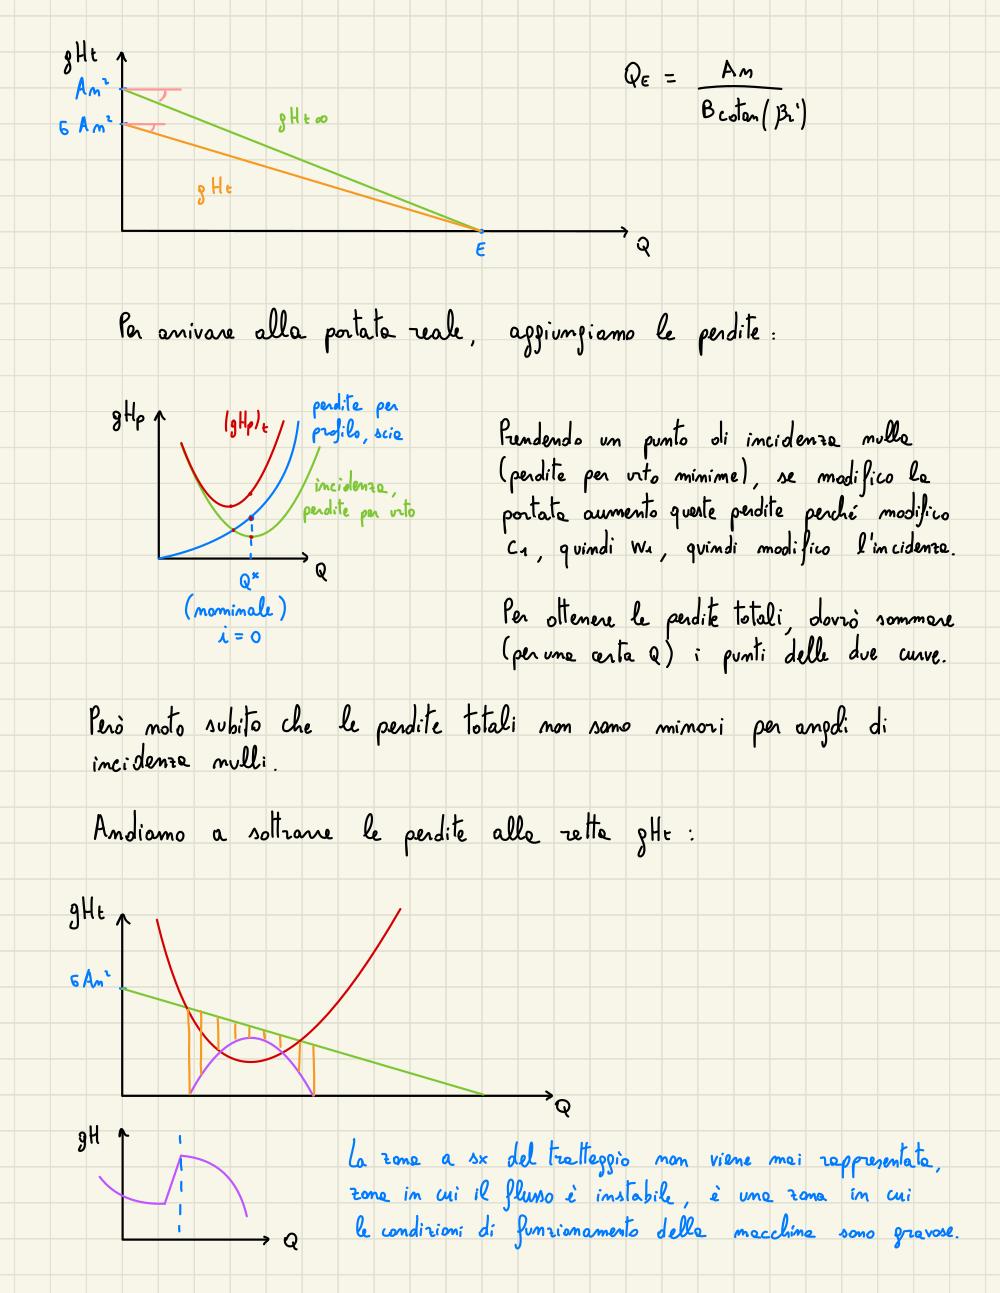 gHt
An²
σAn²
gHt∞
gHt
E
Q
QE = An / Bcotan(β2')
Per arrivare alla portata reale, aggiungiamo le perdite:
gHp
(gHp)t
perdite per
profilo, scia
incidenza,
perdite per urto
Q
Q*
(nominale)
i = 0
Prendendo un punto di incidenza nulla
(perdite per urto minime), se modifico la
portata aumento queste perdite perché modifico
C1, quindi W1, quindi modifico l'incidenza.
Per ottenere le perdite totali, dovrò sommare
(per una certa Q) i punti delle due curve.
Però noto subito che le perdite totali non sono minori per angoli di
incidenza nulli.
Andiamo a sottrarre le perdite alla retta gHt:
gHt
σAn²
Q
gH
Q
La zona a sx del tratteggio non viene mai rappresentata,
zona in cui il flusso è instabile, è una zona in cui
le condizioni di funzionamento della macchina sono gravose.